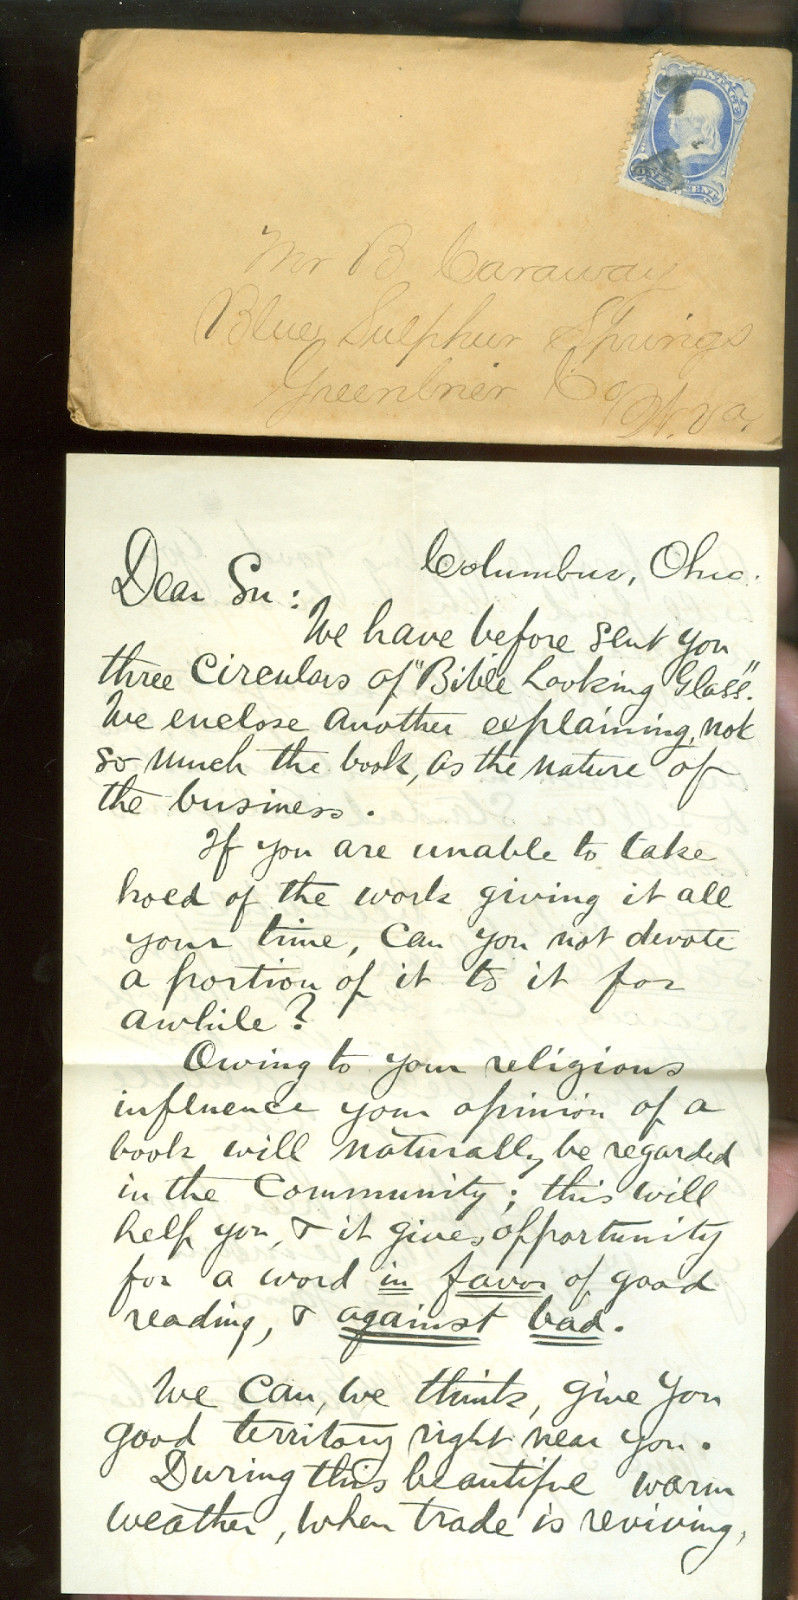 POSTAGE
ONE CENT
Mr B Caraway
Blue Sulphur Springs
Greenbrier Co
W. Va.
Columbus, Ohio.
Dear Sir:
We have before sent you
three circulars of "Bible Looking Glass".
We enclose another explaining, not
so much the book, as the nature of
the business.
If you are unable to take
hold of the work giving it all
your time, can you not devote
a portion of it to it for
awhile?
Owing to your religious
influence your opinion of a
book will naturally be regarded
in the community; this will
help you, & it gives opportunity
for a word in favor of good
reading, & against bad.
We can, we think, give you
good territory right near you.
During this beautiful warm
weather, when trade is reviving,